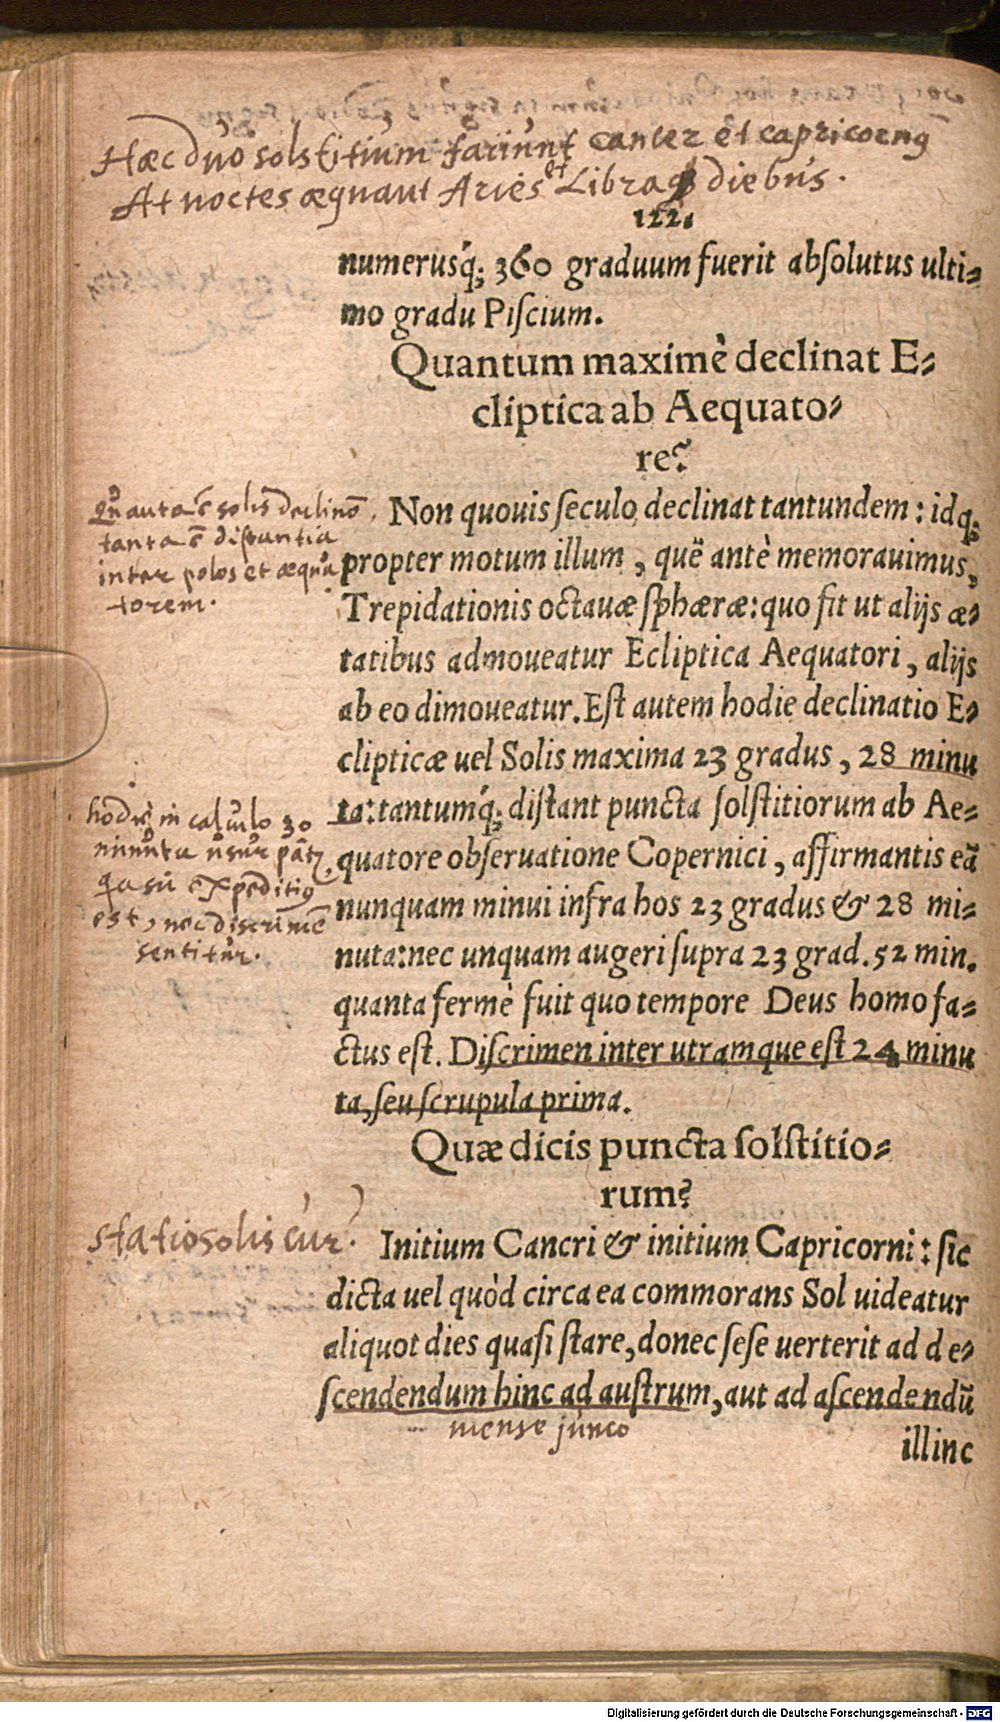 Haec duo solstitium faciunt cancer et capricornus
At noctes æquant Aries et Libra diebus.
122.
numerusq́; 360 graduum fuerit absolutus ulti-
mo gradu Piscium.
Quantum maximè declinat E-
cliptica ab Aequato-
re?
Quanta ē solis declinō.
tanta ē distantia
inter polos et æqua
torem.
Non quouis seculo declinat tantundem: idq;
propter motum illum, quē antè memorauimus,
Trepidationis octauæ sphæræ: quo fit ut alijs æ-
tatibus admoueatur Ecliptica Aequatori, alijs
ab eo dimoueatur. Est autem hodie declinatio E-
clipticæ uel Solis maxima 23 gradus, 28 minu
ta: tantumq́; distant puncta solstitiorum ab Ae-
quatore obseruatione Copernici, affirmantis eā
nunquam minui infra hos 23 gradus & 28 mi-
nuta: nec unquam augeri supra 23 grad. 52 min.
quanta fermè fuit quo tempore Deus homo fa-
ctus est. Discrimen inter utramque est 24 minu
ta, seu scrupula prima.
hodie in calculo 30
minuta
expeditius
est, nec discrimē
sentitur.
Quæ dicis puncta solstitio-
rum?
statio solis cur.
Initium Cancri & initium Capricorni: sic
dicta uel quòd circa ea commorans Sol uideatur
aliquot dies quasi stare, donec sese uerterit ad de-
scendendum hinc ad austrum, aut ad ascendendū
mense junio
illinc
Digitalisierung gefördert durch die Deutsche Forschungsgemeinschaft - DFG